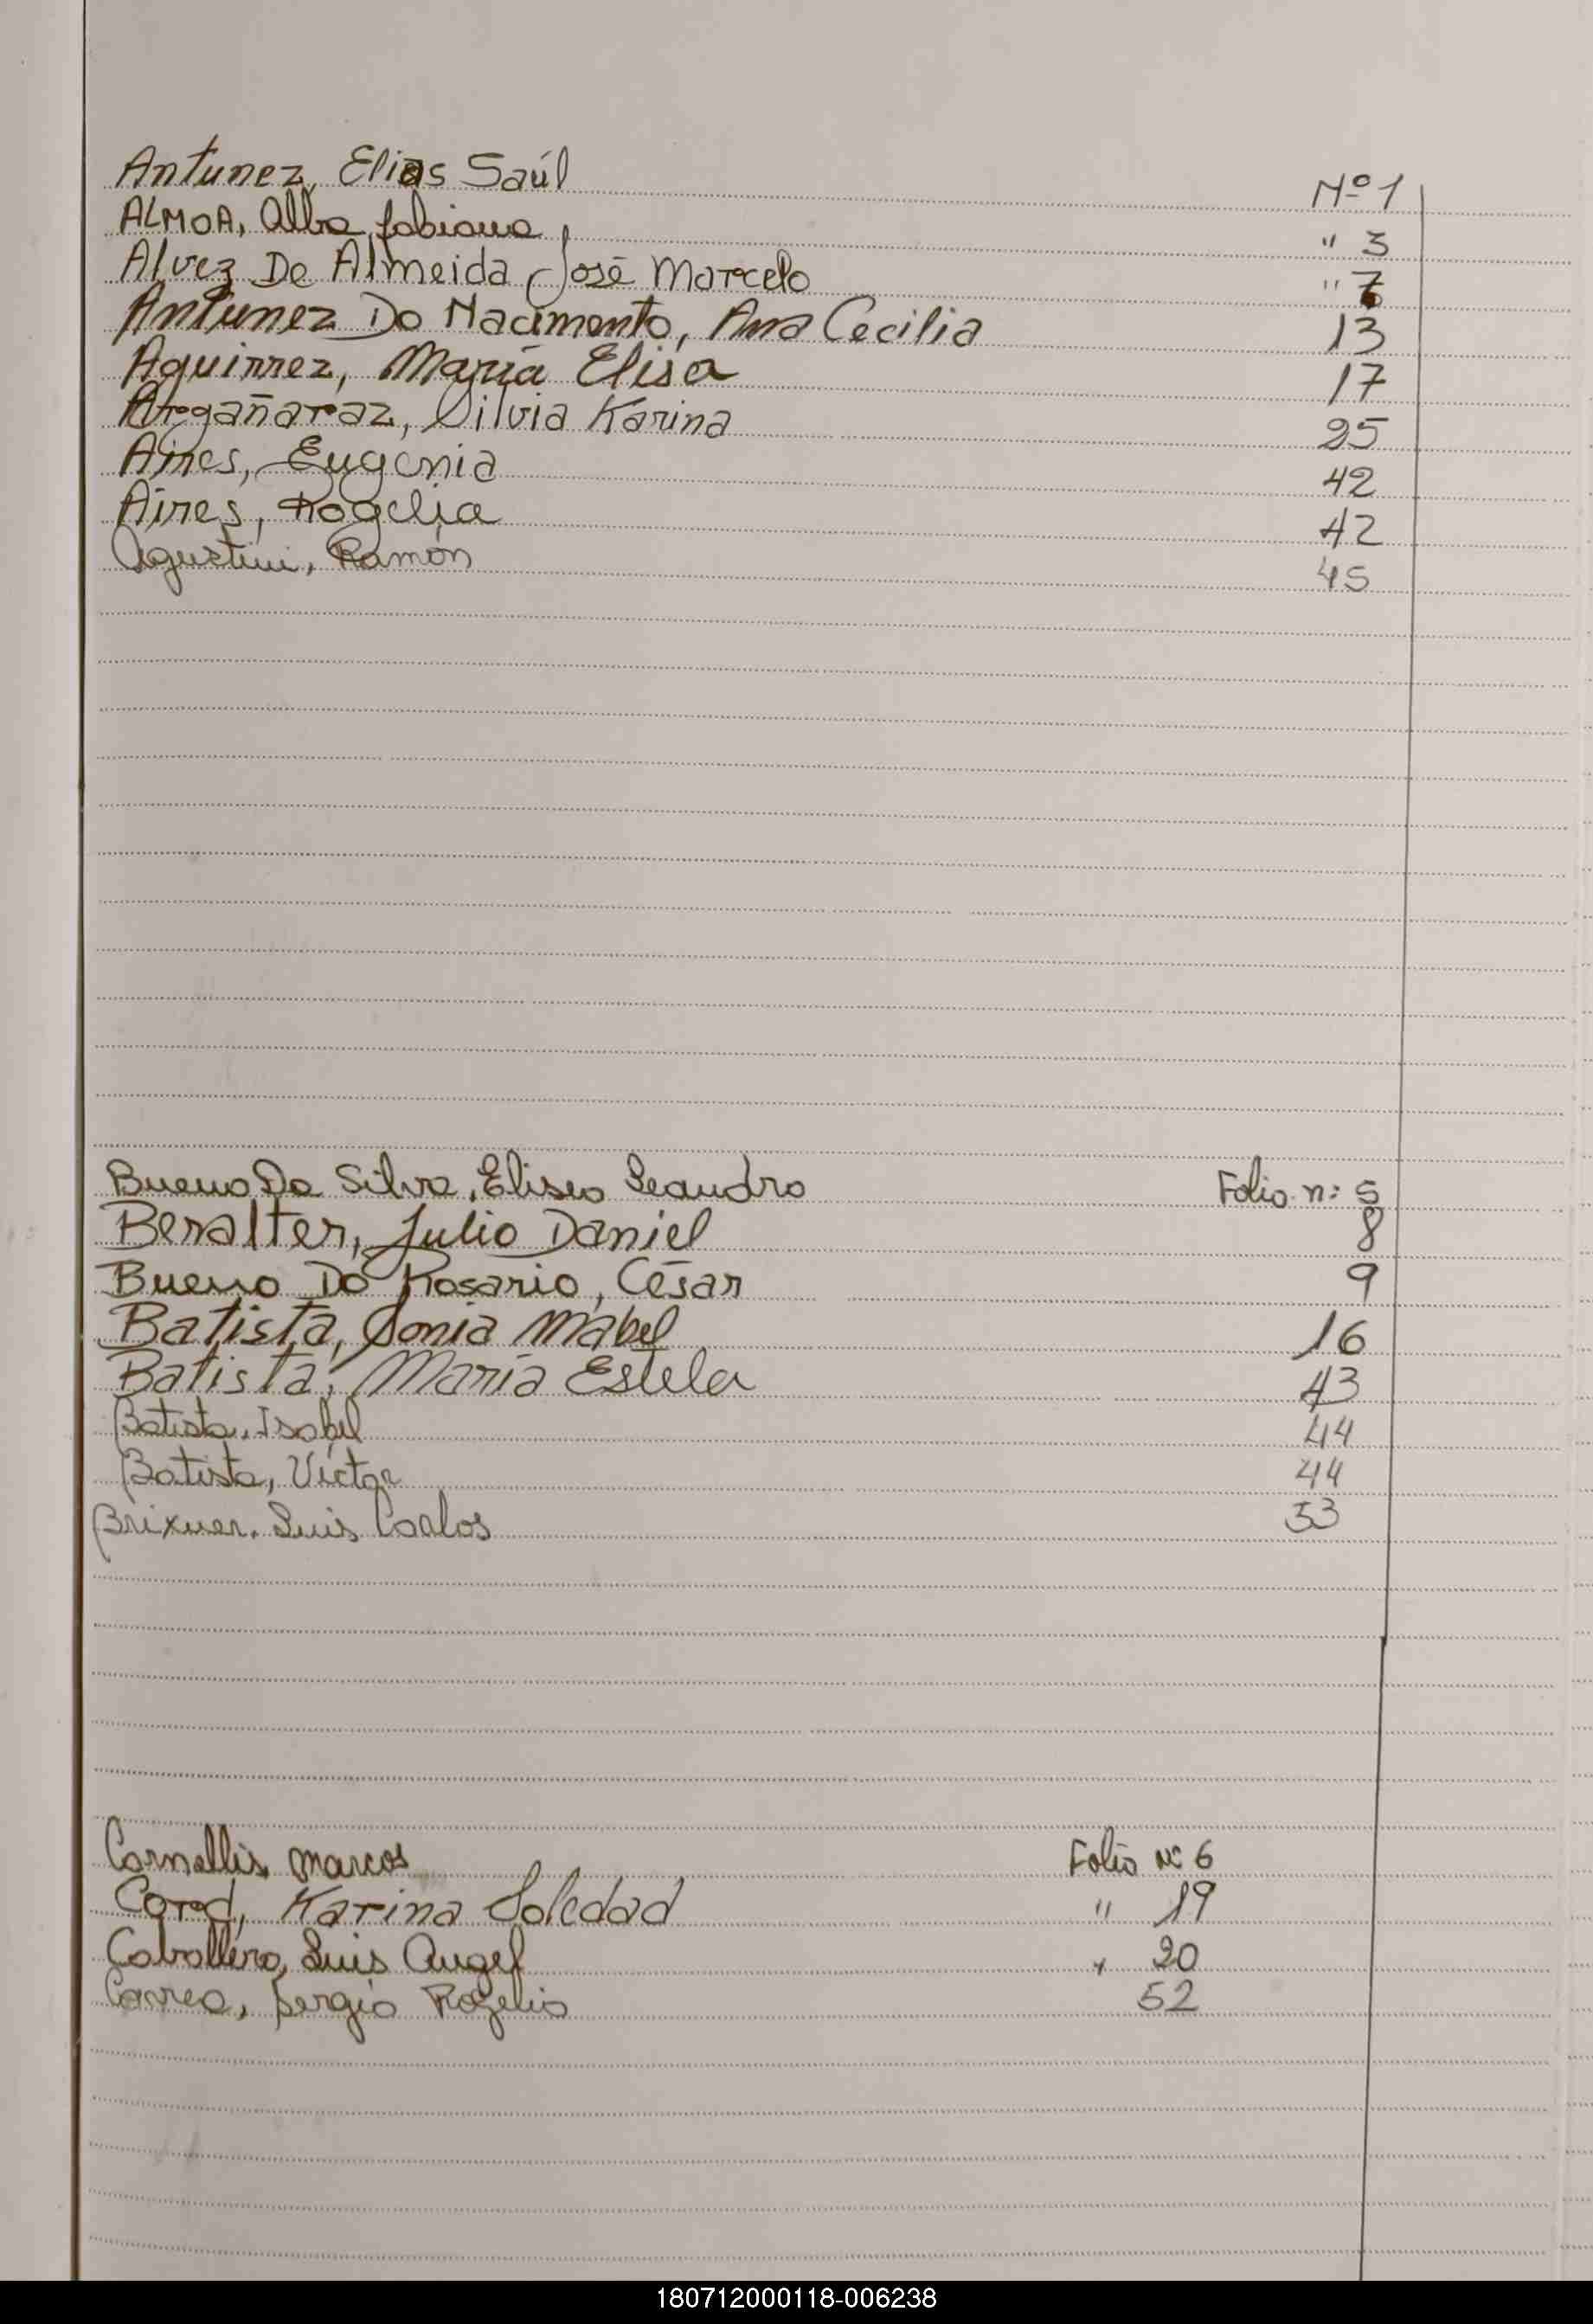 Antunez, Elias Saúl Nº 1
ALMOA, Alba fabiana " 3
Alvez De Almeida, José Marcelo " 7
Antunez Do Nacimento, Ana Cecilia 13
Aguirrez, María Elisa 17
Argañaraz, Silvia Karina 25
Aires, Eugenia 42
Aires, Rogelia 42
Agustini, Ramón 45
Bueno Da Silva, Eliseo Leandro Folio n: 5
Beralter, Julio Daniel 8
Bueno Do Rosario, César 9
Batista, Sonia Mabel 16
Batista, María Estela 43
Batista, Isabel 44
Batista, Víctor 44
Brixner, Luis Carlos 53
Cornellis, Marcos Folio Nº 6
Karina Soledad " 19
Caballero, Luis Angel " 20
Correa, Sergio Rogelio 52
180712000118-006238